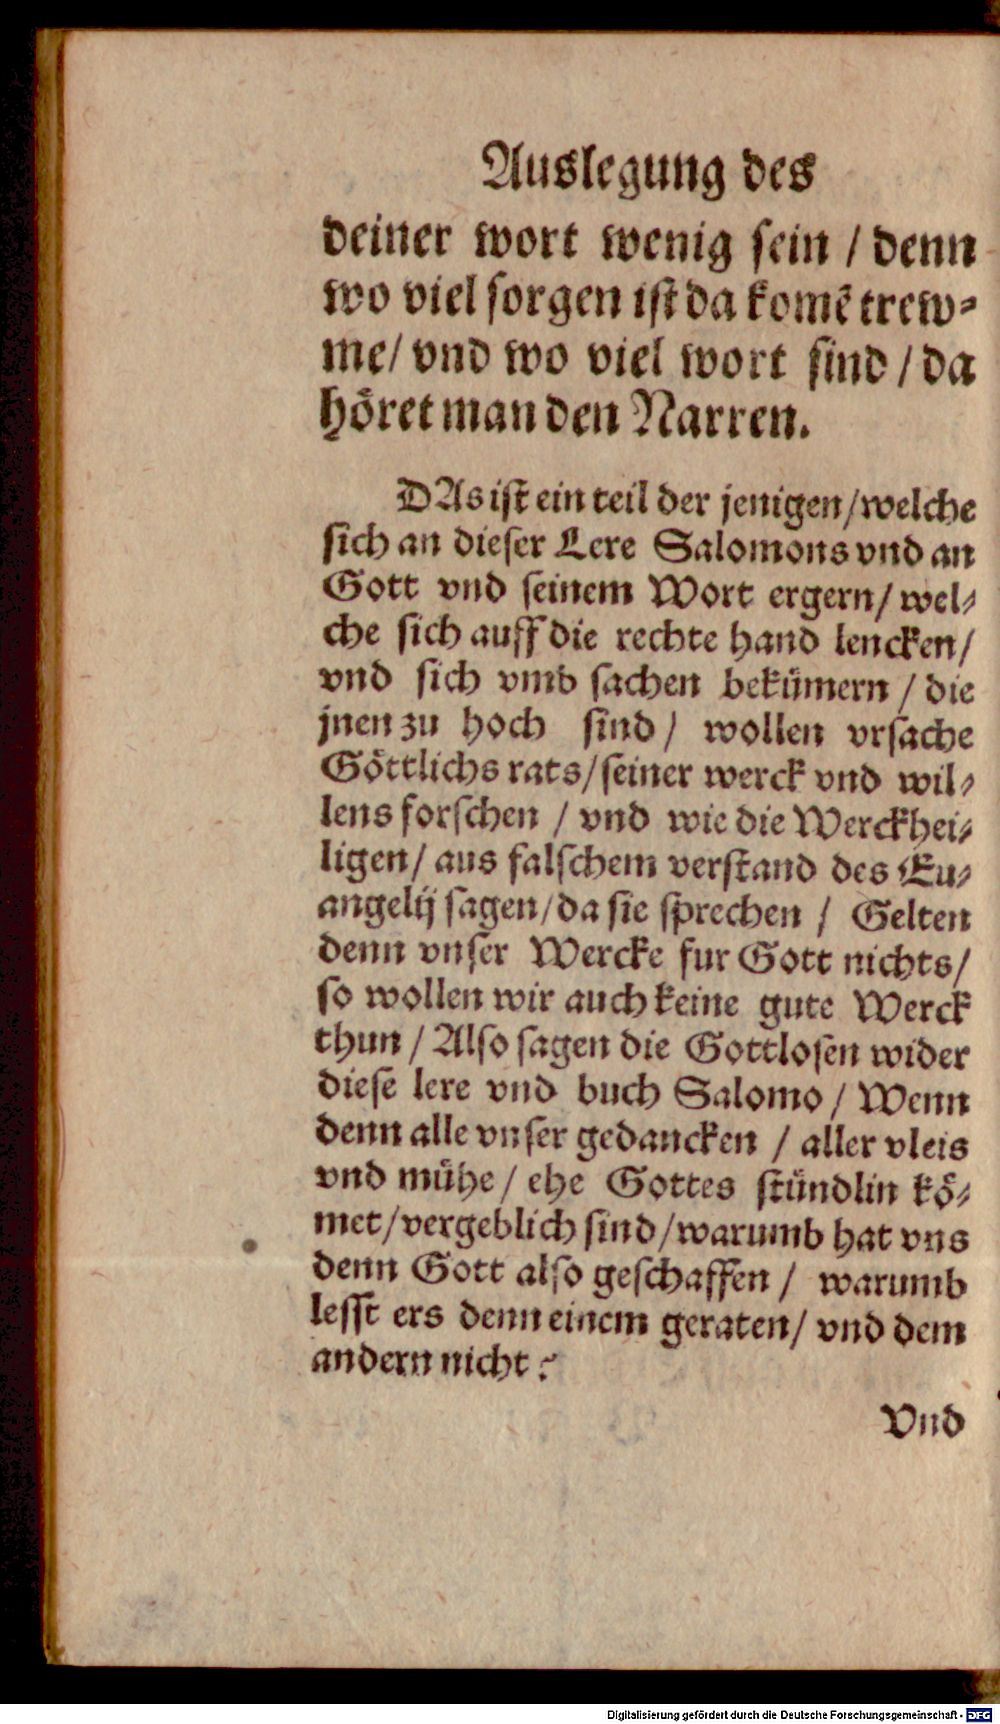 Auslegung des
deiner wort wenig sein / denn
wo viel sorgen ist da komẽ trew⸗
me/ vnd wo viel wort sind / da
hoͤret man den Narren.
DAs ist ein teil der jenigen/welche
sich an dieser Lere Salomons vnd an
Gott vnd seinem Wort ergern/ wel⸗
che sich auff die rechte hand lencken/
vnd sich vmb sachen bekuͤmern / die
jnen zu hoch sind / wollen vrsache
Goͤttlichs rats/seiner werck vnd wil⸗
lens forschen / vnd wie die Werckhei⸗
ligen/ aus falschem verstand des Eu⸗
angelij sagen/da sie sprechen / Gelten
denn vnser Wercke fur Gott nichts/
so wollen wir auch keine gute Werck
thun / Also sagen die Gottlosen wider
diese lere vnd buch Salomo / Wenn
denn alle vnser gedancken / aller vleis
vnd muͤhe / ehe Gottes stuͤndlin koͤ⸗
met/vergeblich sind/warumb hat vns
denn Gott also geschaffen / warumb
lesst ers denn einem geraten/ vnd dem
andern nicht?
Vnd
Digitalisierung gefördert durch die Deutsche Forschungsgemeinschaft - DFG